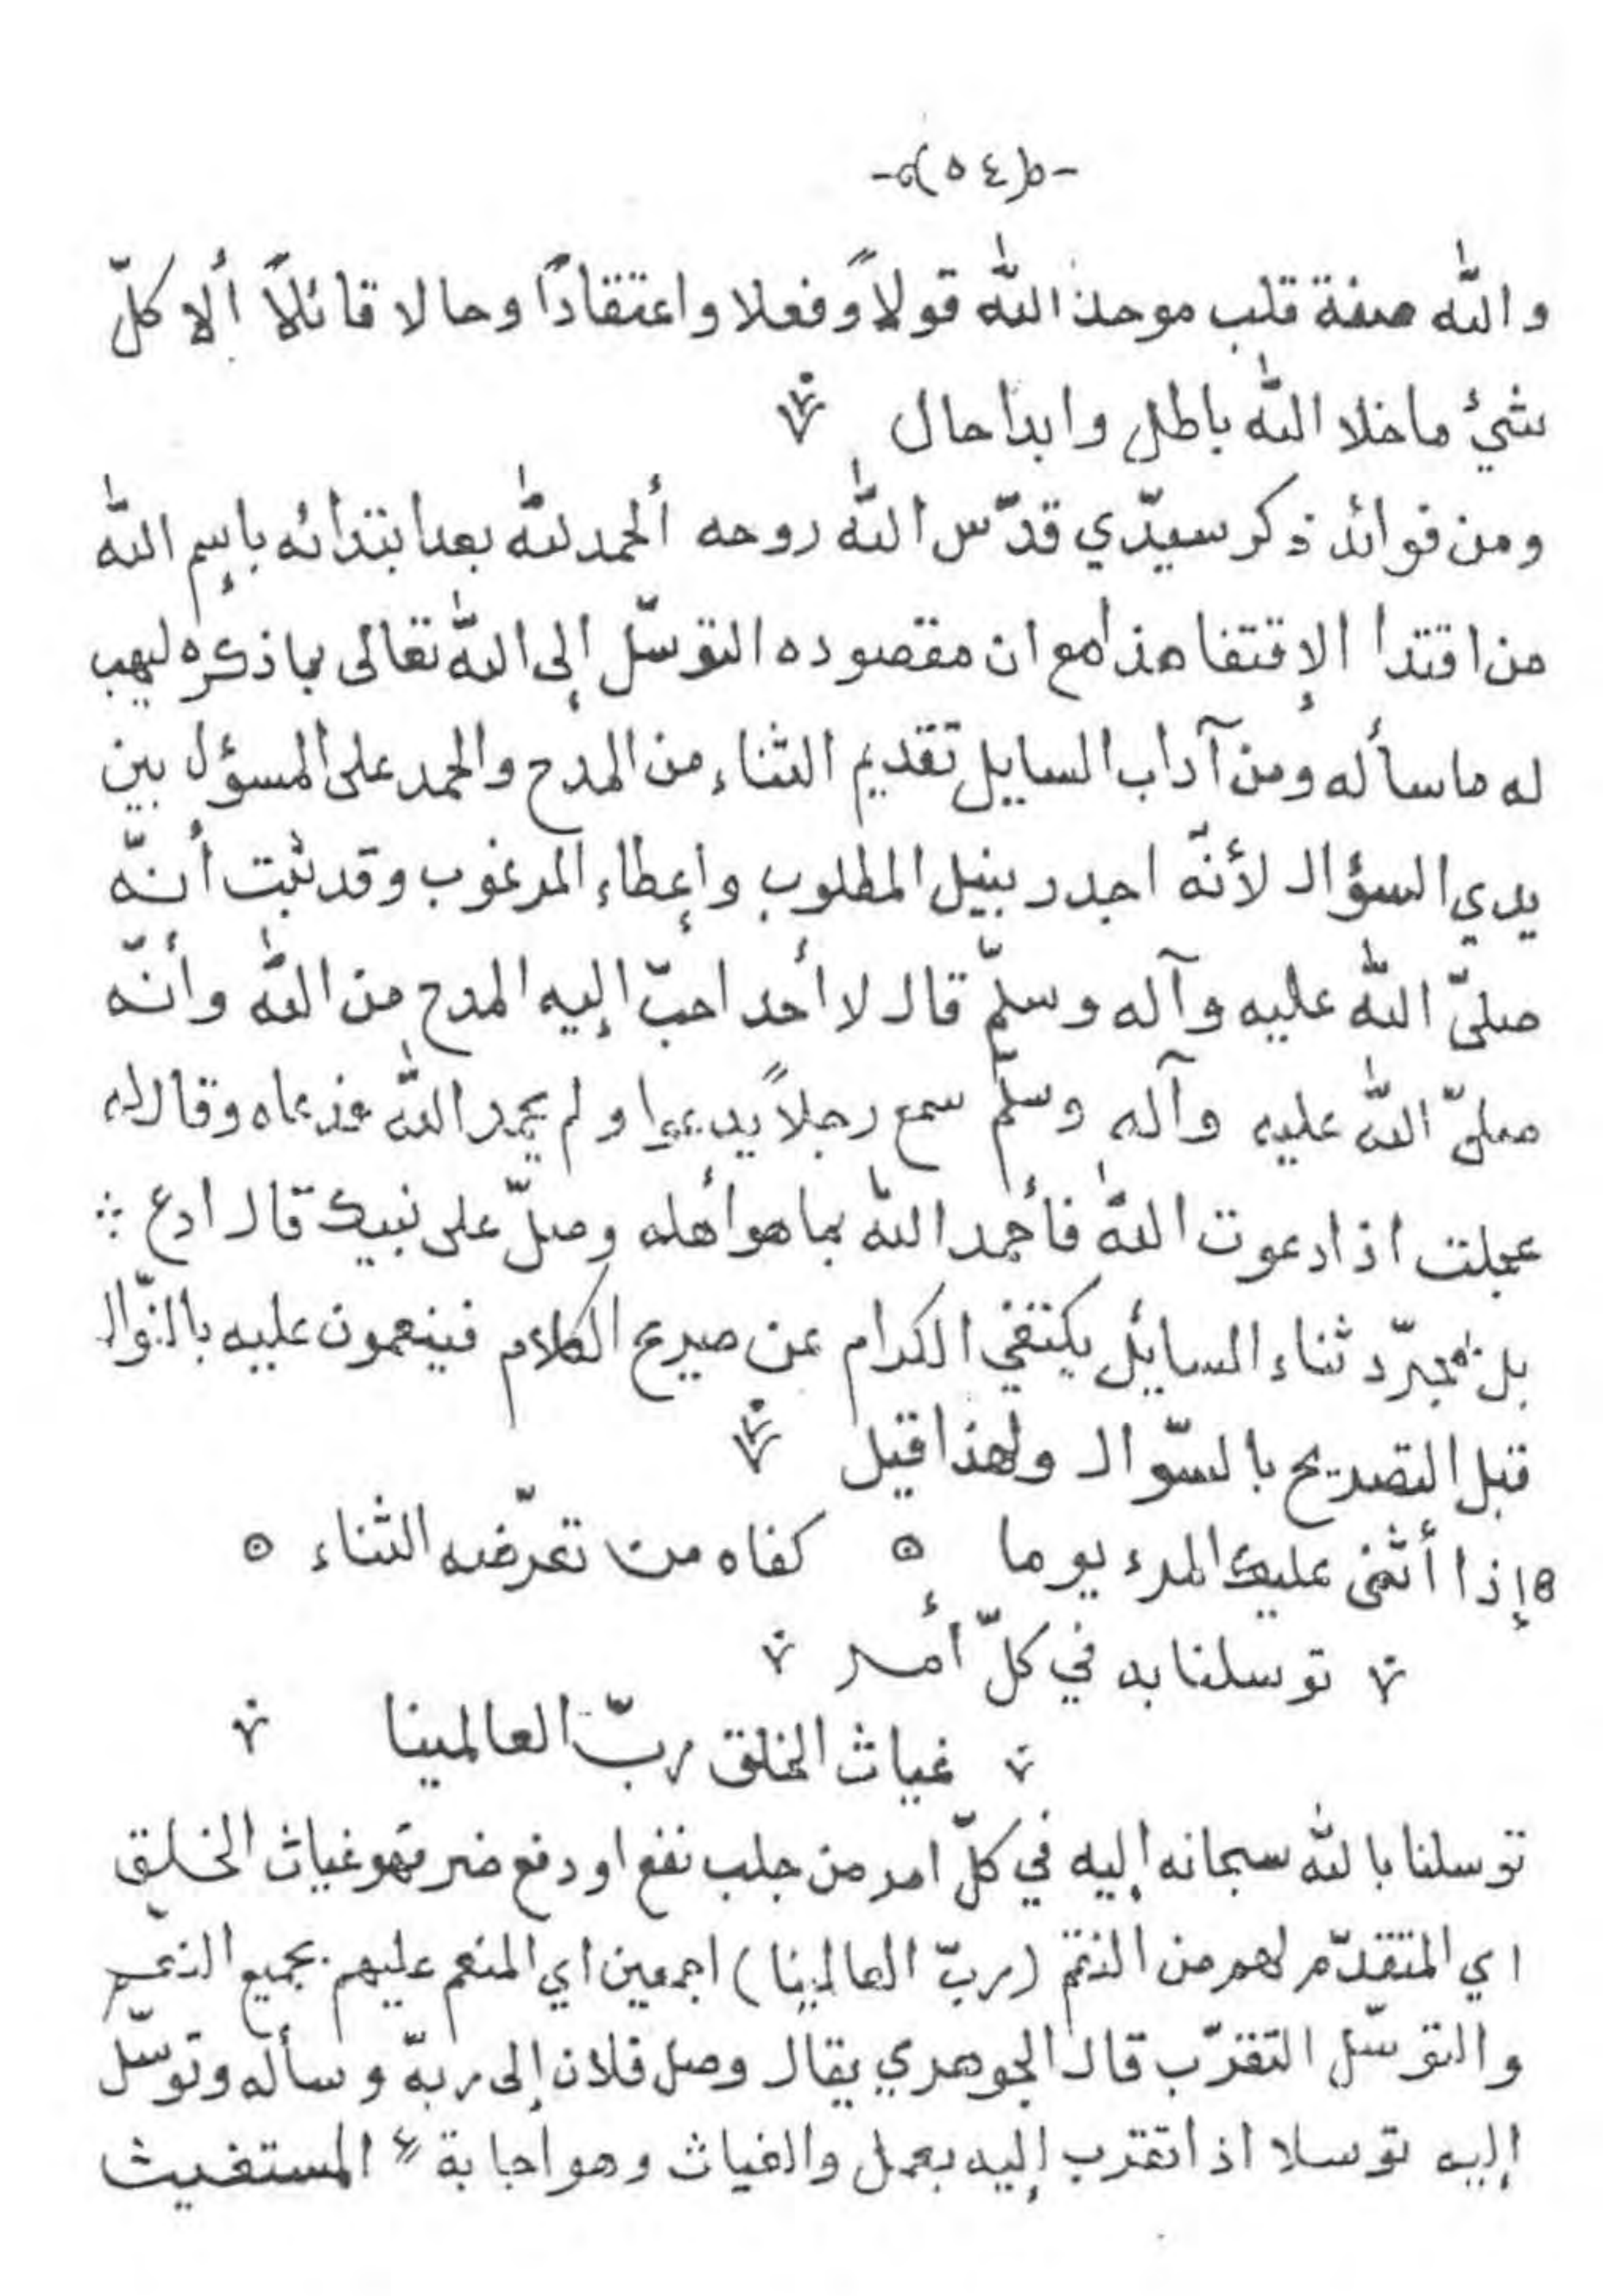 -(٥٤)-
والله صفة قلب موحد الله قولاً وفعلا واعتقادًا وحالا قائلاً ألا كلّ
شيئ ماخلا الله باطل وابدا حال
ومن فوائد ذكر سيّدي قدّس الله روحه ألحمد لله بعد ابتدائه بإسم الله
من اقتدا الإقتفا هذا مع ان مقصوده التوسّل إلى الله تعالى بما ذكره ليهب
له ماسأله ومن آداب السايل تقديم الثناء من المدح والحمد على المسؤل بين
يدي السؤال لأنّه اجدر بنيل المطلوب وإعطاء المرغوب وقد ثبت أنّه
صلىّ الله عليه وآله وسلمّ قال لا أحد احبّ إليه المدح من الله وأنّه
صلىّ الله عليه وآله وسلمّ سمع رجلاً يدعوا ولم يحمد الله فدعاه وقال له
عجلت اذا دعوت الله فأحمد الله بما هو أهله وصلّ على نبيك قال ادع
بل بمجرّد ثناء السايل يكتفي الكرام عن صريح الكلام فينعمون عليه بالنّوال
قبل التصريح بالسّوال ولهذا قيل
إذا أثنى عليك المرء يوما ه كفاه من تعرّضه الثناء ه
توسلنا به في كلّ أمر
غياث الخلق ربّ العالمينا
توسلنا بالله سبحانه إليه في كلّ امر من جلب نفع او دفع ضر فهو غياث الخلق
اي المتقدّم لهم من النقم (ربّ العالمينا) اجمعين اي المنعم عليهم بجميع النعم
والتوسّل التقرّب قال الجوهري يقال وصل فلان إلى ربهّ وسأله وتوسّل
إليه توسلا اذا تقرب إليه بعمل والغياث وهو اجابة المستغيث